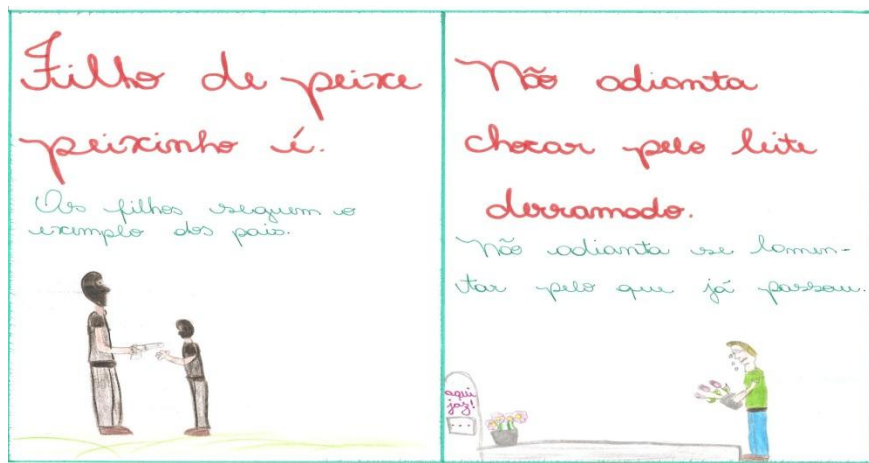 Filho de peixe
peixinho é.
Os filhos seguem o
exemplo dos pais.
Não adianta
chorar pelo leite
derramado.
Não adianta se lamen-
tar pelo que já passou.
aqui
jaz!
...